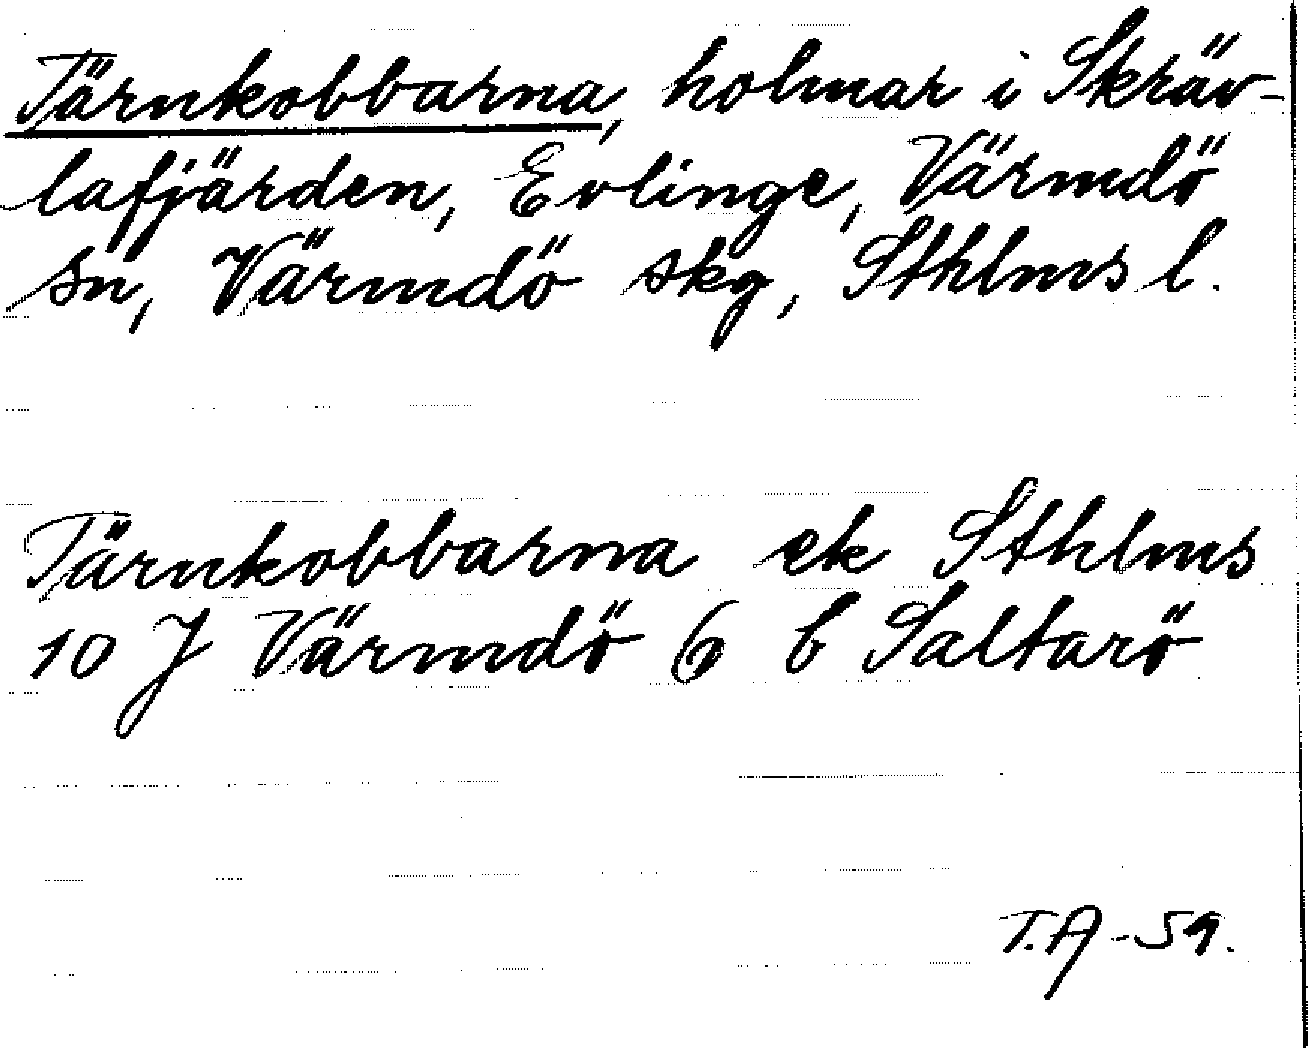 Tärnkobbarna, holmar i Skräv-
lafjärden, Evlinge, Värmdö
sn, Värmdö skg, Sthlms l.
Tärnkobbarna ek Sthlms
10 J Värmdö 6 b Saltarö
T.A -59.